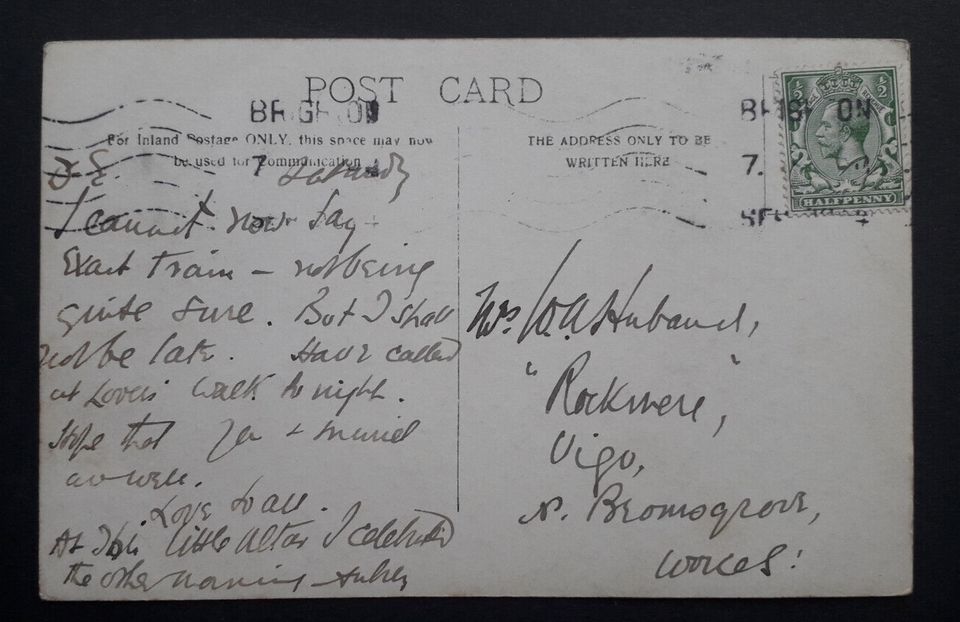 POST CARD
BRIGHTON
BRIGHTON
For Inland Postage ONLY, this space may now
be used for Communication
THE ADDRESS ONLY TO BE
WRITTEN HERE
7.
7.
SEP
HALFPENNY
D. E. Saturday
I cannot now say
Exact train – not being
quite sure. But I shall
not be late. Have called
at Lovers Walk to night.
Hope that you + Muriel
are well.
Love to all.
At this little altar I celebrated
the other morning – Aubrey
Mrs W. A. Huband,
"Rockmere",
Vigo,
nr. Bromsgrove,
Worcs!